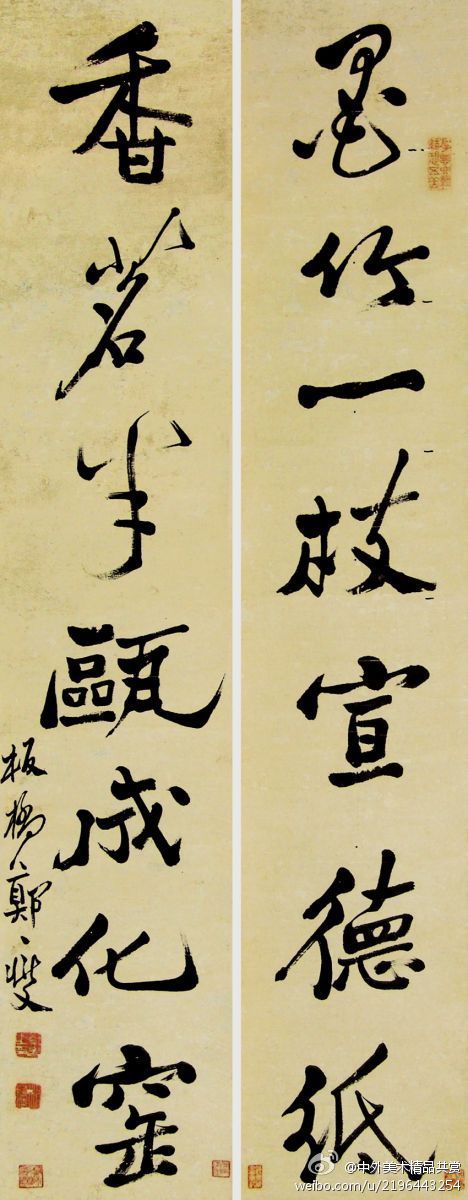 墨竹一枝宣德紙
香茗半甌成化窑
板橋鄭燮
中外美术精品共赏
weibo.com/u/2196443254